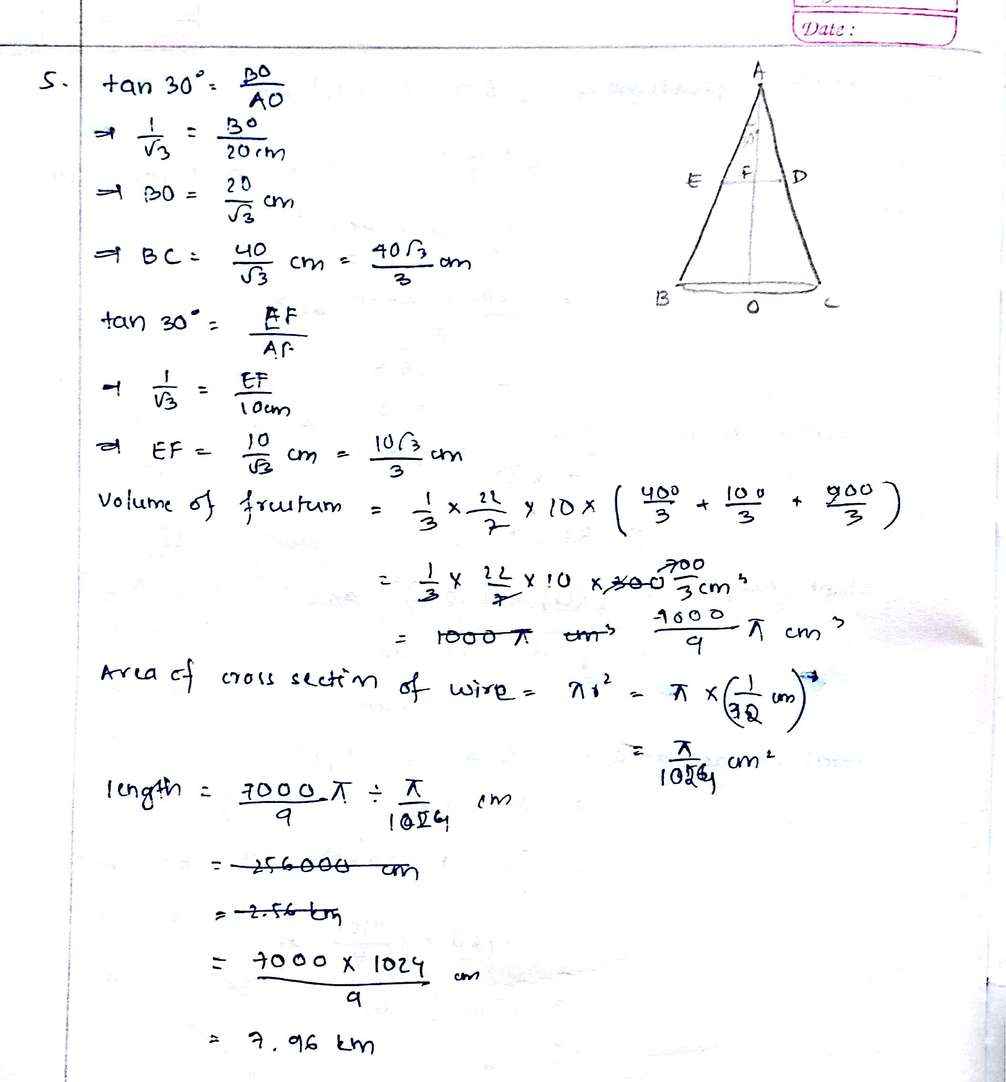 Date :
5. tan 30° = BO/AO
⇒ 1/√3 = BO/20cm
⇒ BO = 20/√3 cm
⇒ BC = 40/√3 cm = 40√3/3 cm
tan 30° = EF/AF
⇒ 1/√3 = EF/10cm
⇒ EF = 10/√3 cm = 10√3/3 cm
A
30°
E F D
B O C
Volume of frustum = 1/3 × 22/7 × 10 × (400/3 + 100/3 + 900/3)
= 1/3 × 22/7 × 10 × 300 700/3 cm³
= 1000 π cm³ 7000/9 π cm³
Area of cross section of wire = πr² = π × (1/32 cm)²
= π/1024 cm²
length = 7000/9 π ÷ π/1024 cm
= 256000 cm
= 2.56 km
= 7000 × 1024/9 cm
= 7.96 km